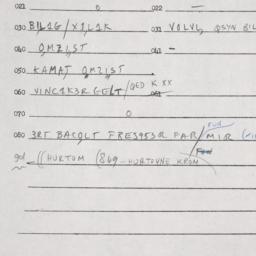 021 0 022 —
030 B1L1G/X1L1K 031 VOLVL, QSYN BIL
040 QMZ1ST 041 –
050 KAMAT QMZ1ST
060 VINC1K3R GELT/QED K XX
070 0
080 3RT BACQLT FRES953R FAR/MIR
((HURTOM (869 – HURTOVNE KROM